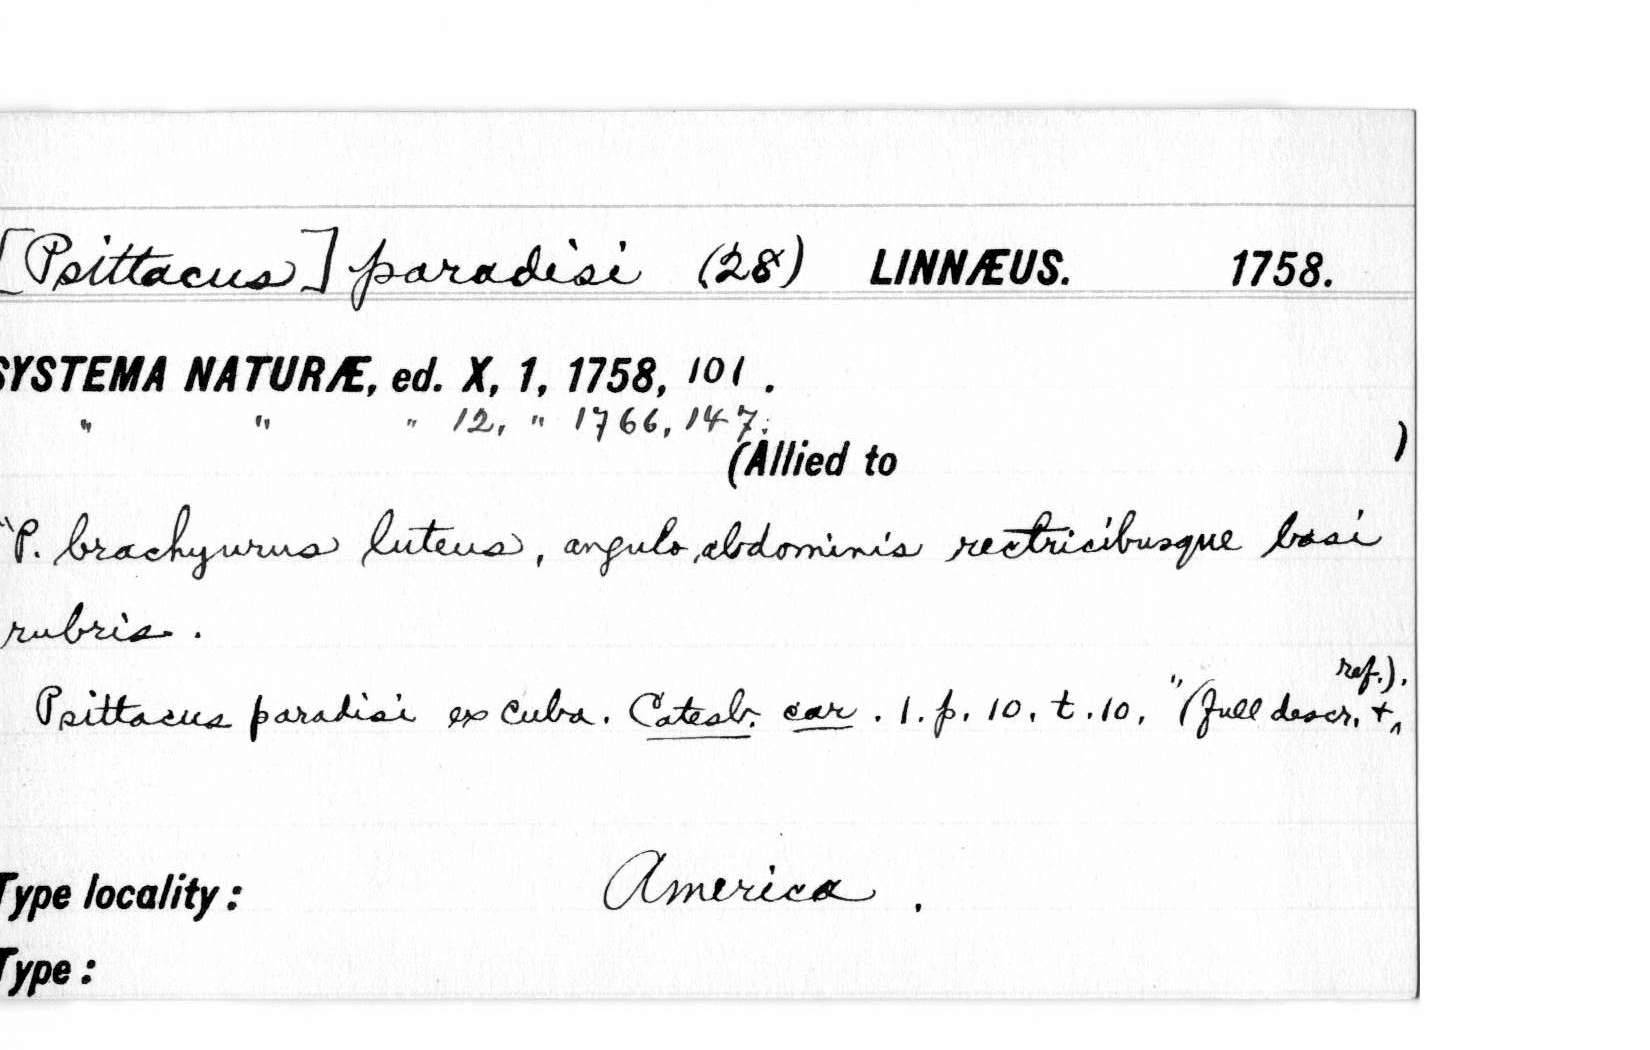 [Psittacus] paradisi (28) LINNÆUS. 1758.
SYSTEMA NATURÆ, ed. X, 1, 1758, 101.
" " " 12, " 1766, 147.
(Allied to )
"P. brachyurus luteus, angulo abdominis rectricibusque basi
rubris.
Psittacus paradisi ex cuba. Catesb. car. 1. p. 10. t. 10." (full descr. + ref.).
Type locality: America.
Type: